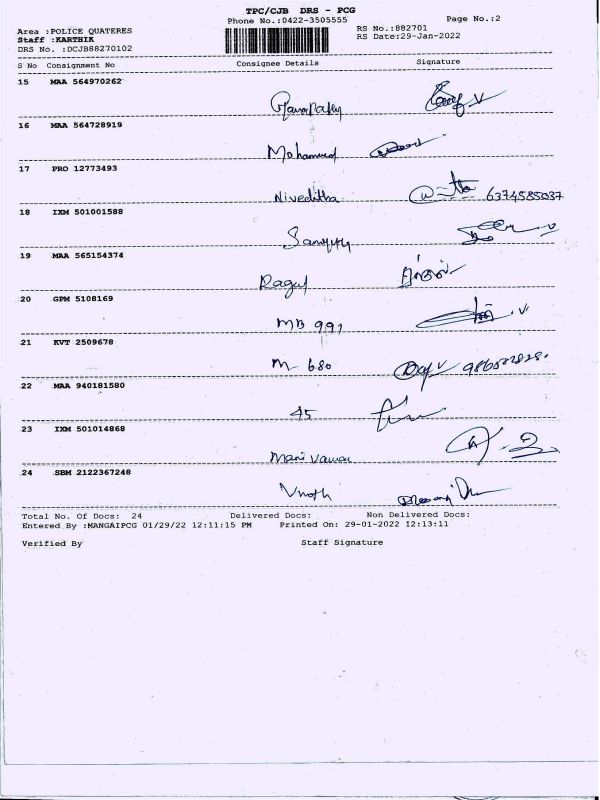 TPC/CJB DRS - PCG
Phone No.:0422-3505555
Page No.:2
Area :POLICE QUATERES
RS No.:882701
Staff :KARTHIK
RS Date:29-Jan-2022
DRS No. :DCJB88270102
S No Consignment No Consignee Details Signature
15 MAA 564970262
16 MAA 564728919
Mohammed
17 PRO 12773493
Niveditha 6374585037
18 IXM 501001588
19 MAA 565154374
Ragul
20 GPM 5108169
MB 991
21 KVT 2509678
M 680
22 MAA 940181580
45
23 IXM 501014868
Mani
24 SBM 2122367248
Total No. Of Docs: 24 Delivered Docs: Non Delivered Docs:
Entered By :MANGAIPCG 01/29/22 12:11:15 PM Printed On: 29-01-2022 12:13:11
Verified By Staff Signature